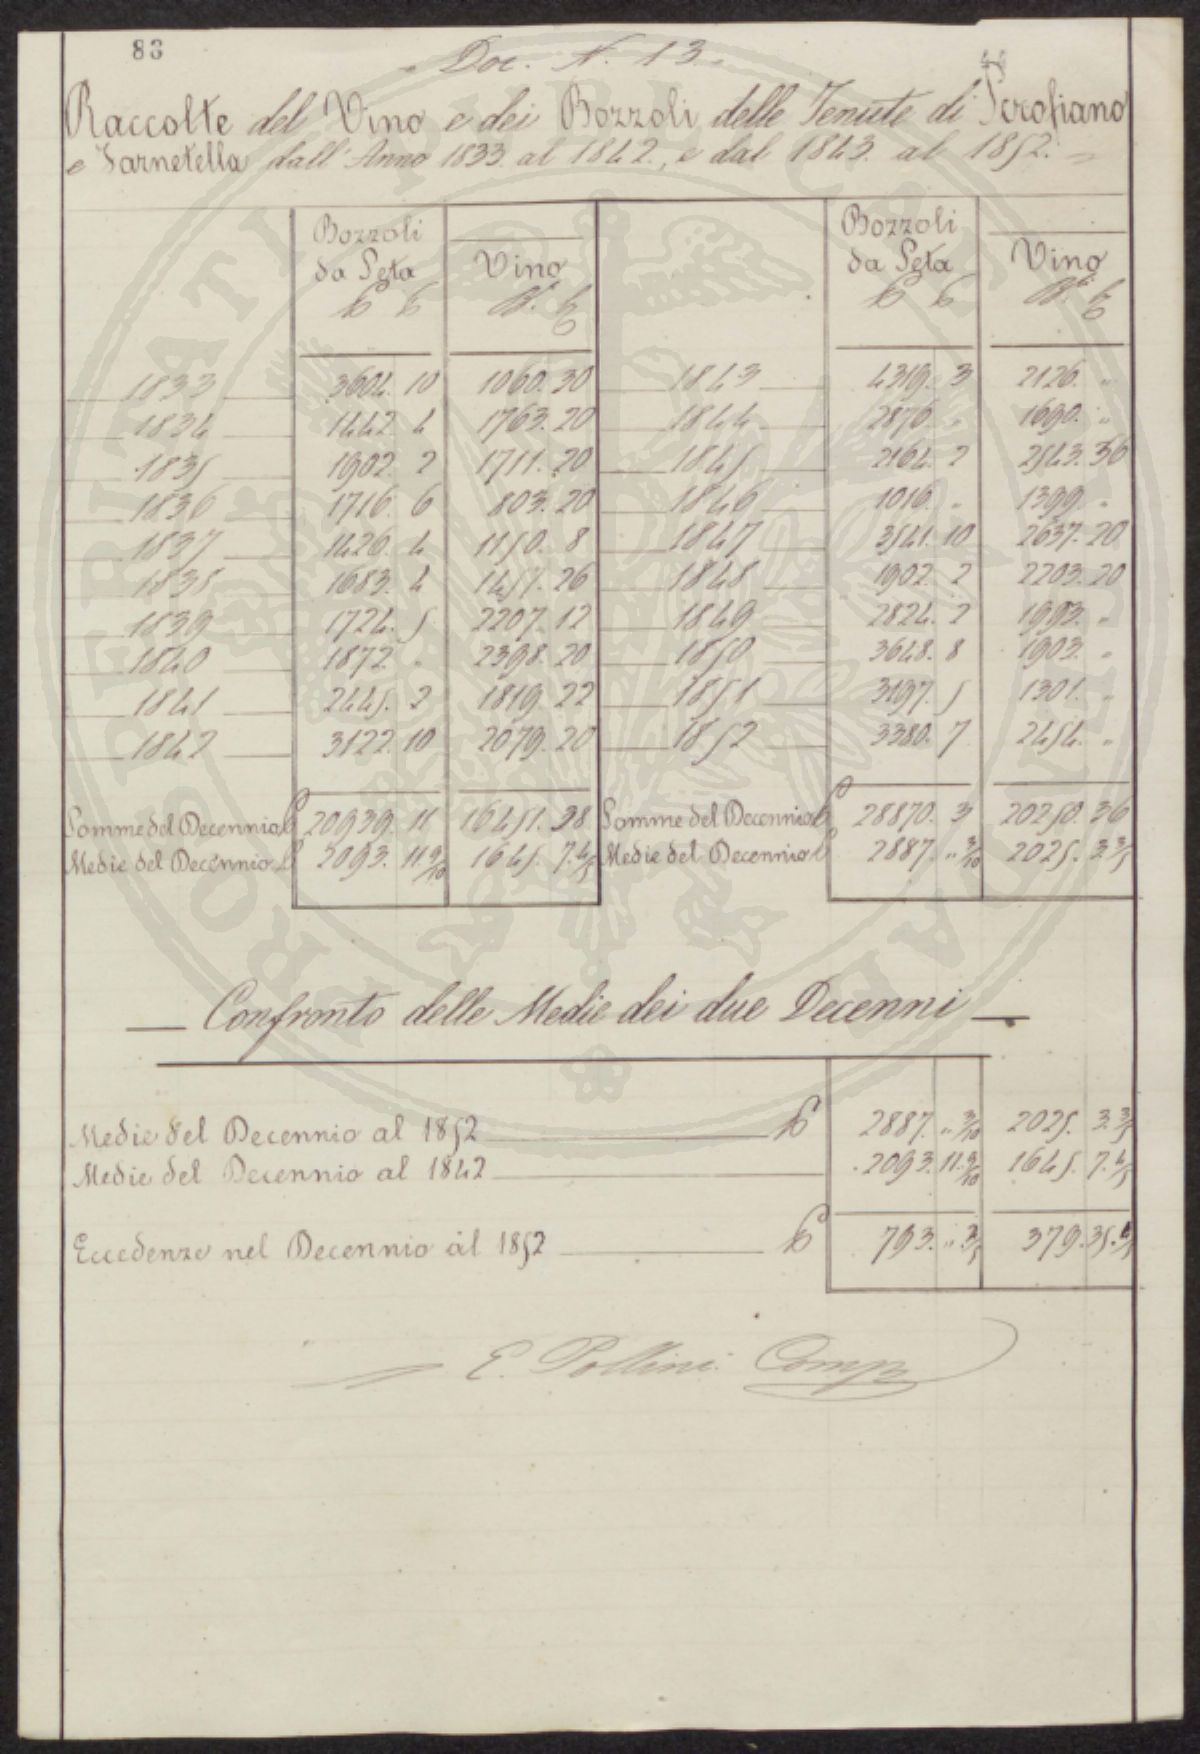 83
Doc. N. 13.
Raccolte del Vino e dei Bozzoli delle Tenute di Scrofiano
e Farnetella dall'Anno 1833. al 1842., e dal 1843. al 1852. =
Bozzoli da Seta Vino Bozzoli da Seta Vino
1833 3604. 10 1060. 30 1843 4319. 3 2126. "
1834 1442. 4 1763. 20 1844 2876. " 1690. "
1835 1902. 2 1711. 20 1845 2164. 2 2543. 36
1836 1716. 6 803. 20 1846 1016. " 1399. "
1837 1426. 4 1150. 8 1847 3541. 10 2637. 20
1838 1683. 4 1457. 26 1848 1902. 2 2203. 20
1839 1724. 5 2207. 12 1849 2824. 2 1993. "
1840 1872. " 2398. 20 1850 3648. 8 1903. "
1841 2445. 2 1819. 22 1851 3197. 5 1301. "
1842 3122. 10 2079. 20 1852 3380. 7 2454. "
Somme del Decennio 20939. 11 16451. 38 Somme del Decennio 28870. 3 20250. 36
Medie del Decennio 2093. 11. 9/10 1645. 7. 4/5 Medie del Decennio 2887. " 3/10 2025. 3. 3/5
Confronto delle Medie dei due Decenni
Medie del Decennio al 1852 2887. " 3/10 2025. 3. 3/5
Medie del Decennio al 1842 2093. 11. 9/10 1645. 7. 4/5
Eccedenze nel Decennio al 1852 793. " 2/5 379. 35.
E. Pollini Comp